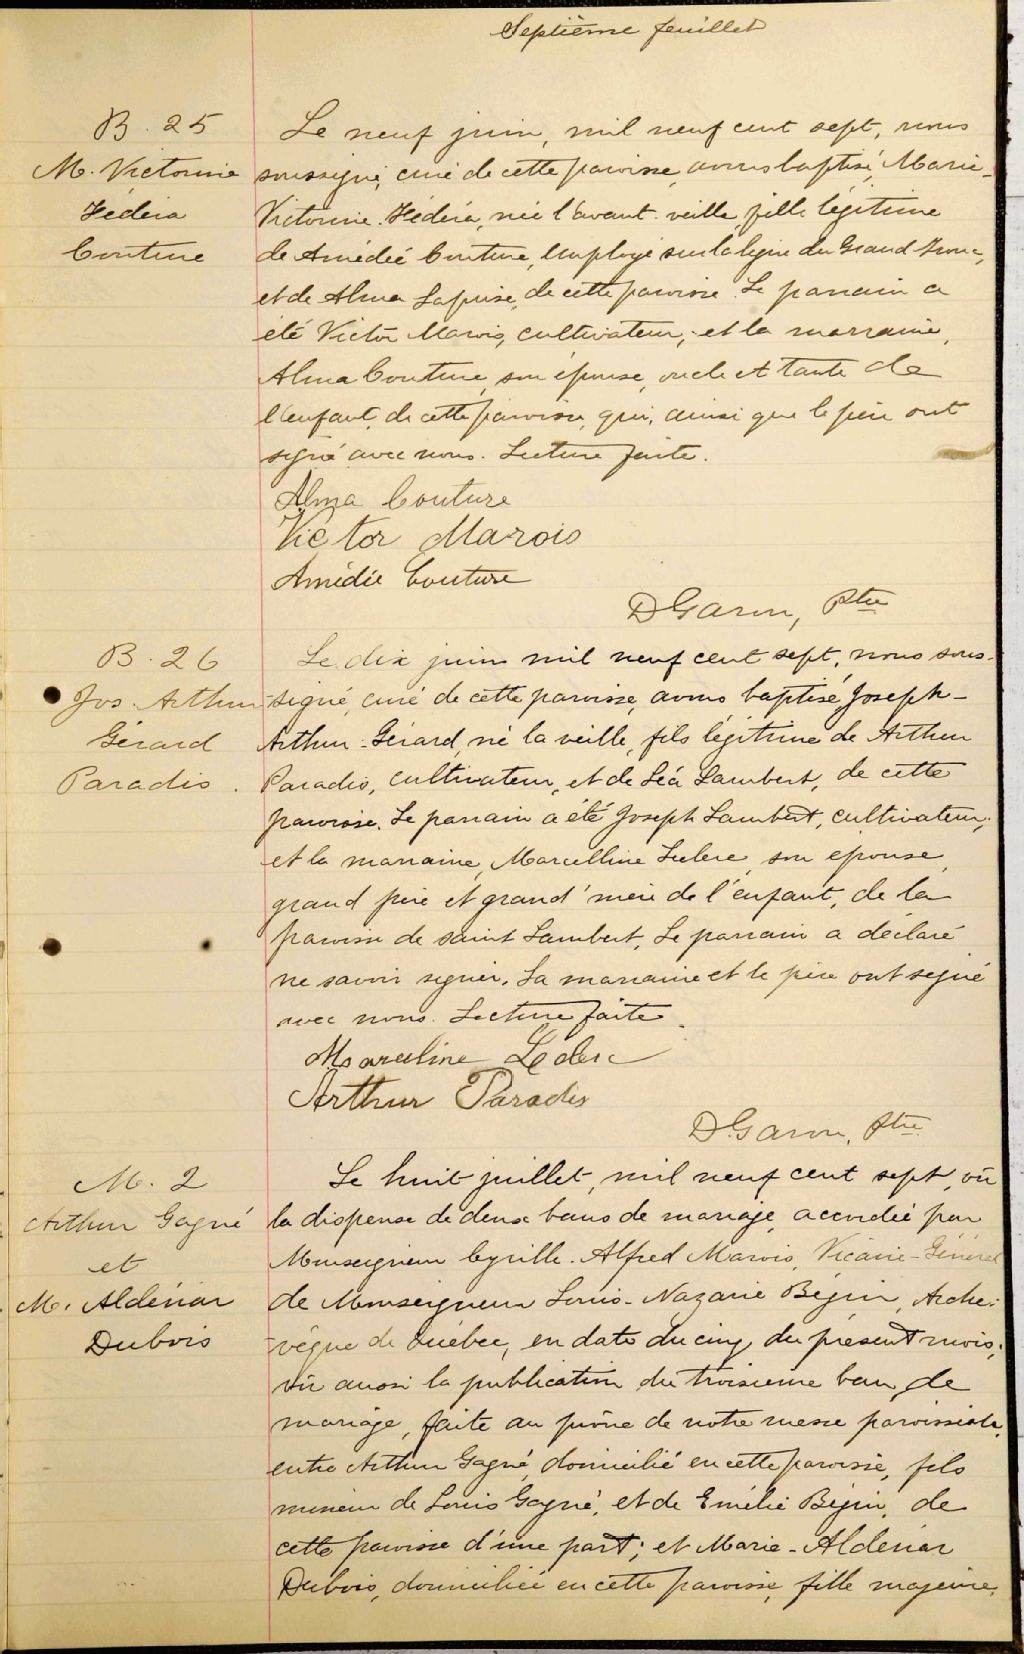 Septième feuillet
B. 25
M. Victorine
Fédéra
Couture
Le neuf juin, mil neuf cent sept, nous
soussigné, curé de cette paroisse, avons baptisé, Marie-
Victorine-Fédéra, née l'avant-veille, fille légitime
de Amédée Couture, employé sur la ligne du Grand Tronc,
et de Alma Laprise, de cette paroisse. Le parrain a
été Victor Marois, cultivateur, et la marraine,
Alma Couture, son épouse, oncle et tante de
l'enfant, de cette paroisse, qui, ainsi que le père ont
signé avec nous. Lecture faite.
Alma Couture
Victor Marois
Amédée Couture
D Garon, Ptre
B. 26
Jos. Arthur
Gérard
Paradis.
Le dix juin mil neuf cent sept, nous sous-
-signé, curé de cette paroisse, avons baptisé, Joseph-
Arthur-Gérard, né la veille, fils légitime de Arthur
Paradis, cultivateur, et de Léa Lambert, de cette
paroisse. Le parrain a été Joseph Lambert, cultivateur,
et la marraine, Marcelline Leclerc, son épouse,
grand père et grand'mère de l'enfant, de la
paroisse de saint Lambert. Le parrain a déclaré
ne savoir signer. La marraine et le père ont signé
avec nous. Lecture faite.
Marceline Leclerc
Arthur Paradis
D. Garon, Ptre
M. 2
Arthur Gagné
et
M. Aldénar
Dubois
Le huit juillet, mil neuf cent sept, vû
la dispense de deux bans de mariage, accordée par
Monseigneur Cyrille-Alfred Marois, Vicaire-Général
de Monseigneur Louis-Nazaire Bégin, Arche-
-vêque de Québec, en date du cinq du présent mois,
vû aussi la publication du troisième ban de
mariage, faite au prône de notre messe paroissiale,
entre Arthur Gagné, domicilié en cette paroisse, fils
mineur de Louis Gagné, et de Emélie Bégin, de
cette paroisse d'une part; et Marie-Aldénar
Dubois, domiciliée en cette paroisse, fille majeure,